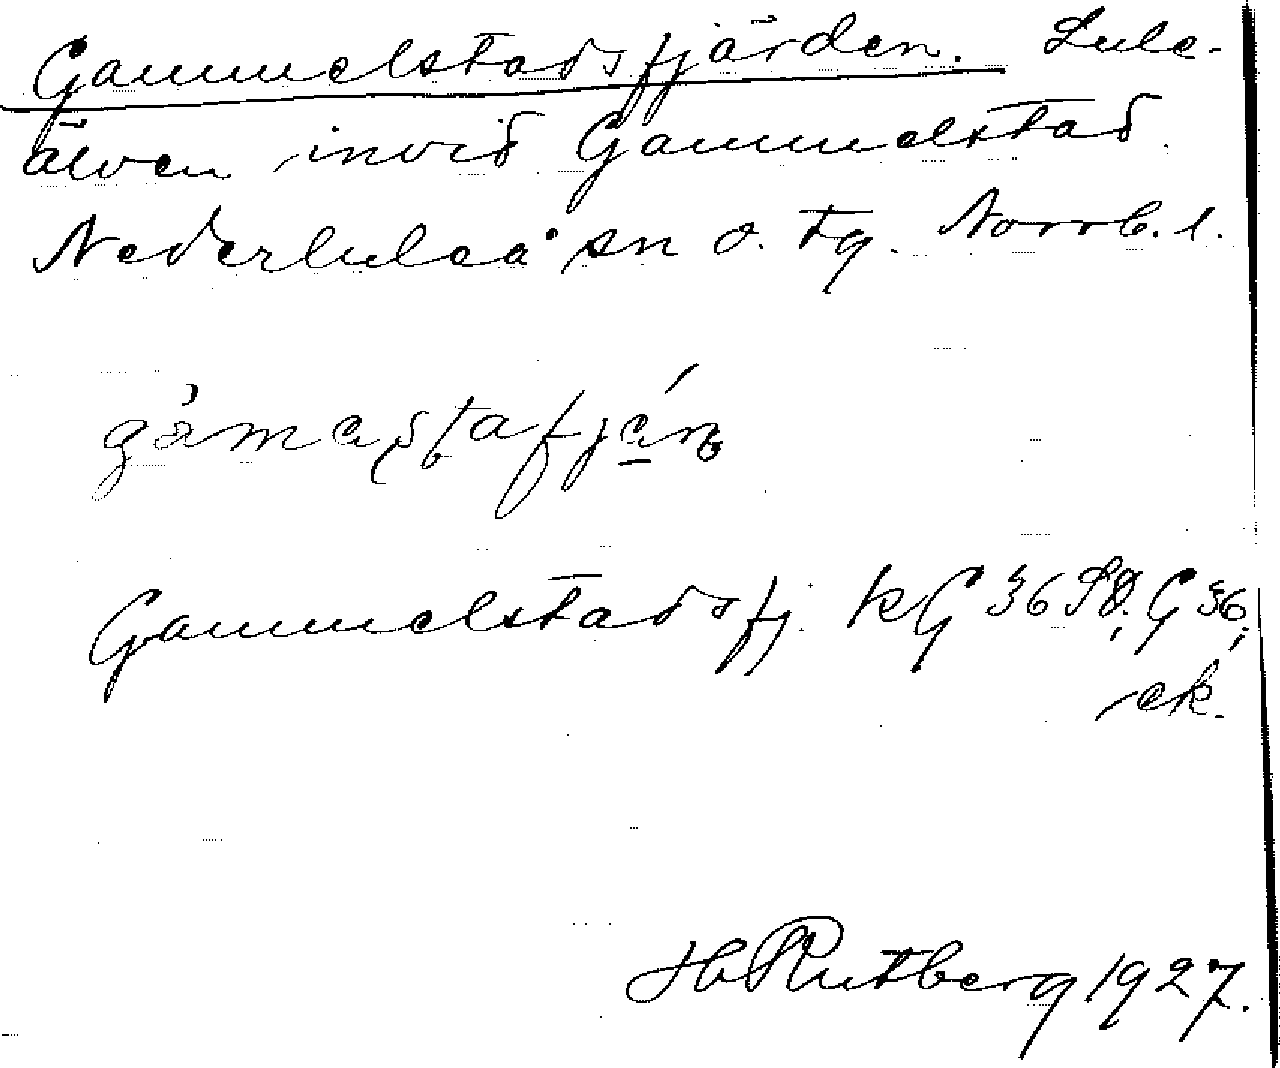 Gammelstadsfjärden. Lule-
älven invid Gammelstad.
Nederluleå sn o. tg. Norrb. l.
Gammelstadsfj. kG 36 SO, G 36,
ek.
H Rutberg 1927.